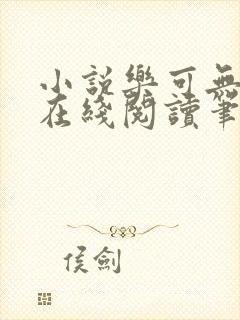 小説樂可無
在綫閱讀筆
侯劍